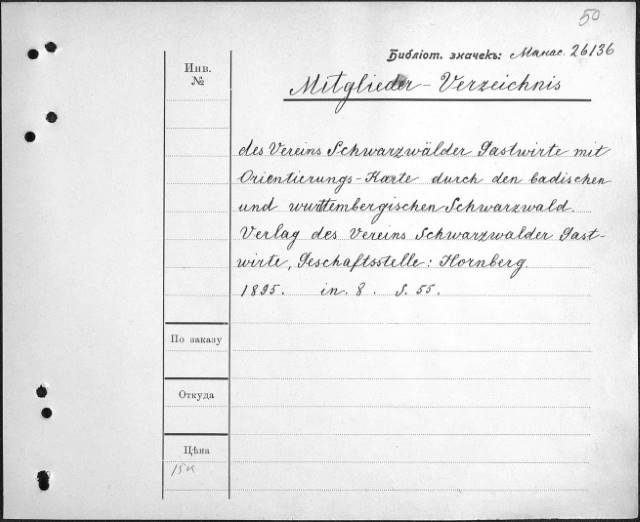 50
Библіот. значекъ: Манас. 26136
Инв.
№
Mitglieder-Verzeichnis
des Vereins Schwarzwälder Gastwirte mit
Orientierungs-Karte durch den badischen
und wurttembergischen Schwarzwald.
Verlag des Vereins Schwarzwalder Gast-
wirte, Geschaftsstelle: Hornberg.
1895. in. 8. S. 55.
По заказу
Откуда
Цѣна
15к